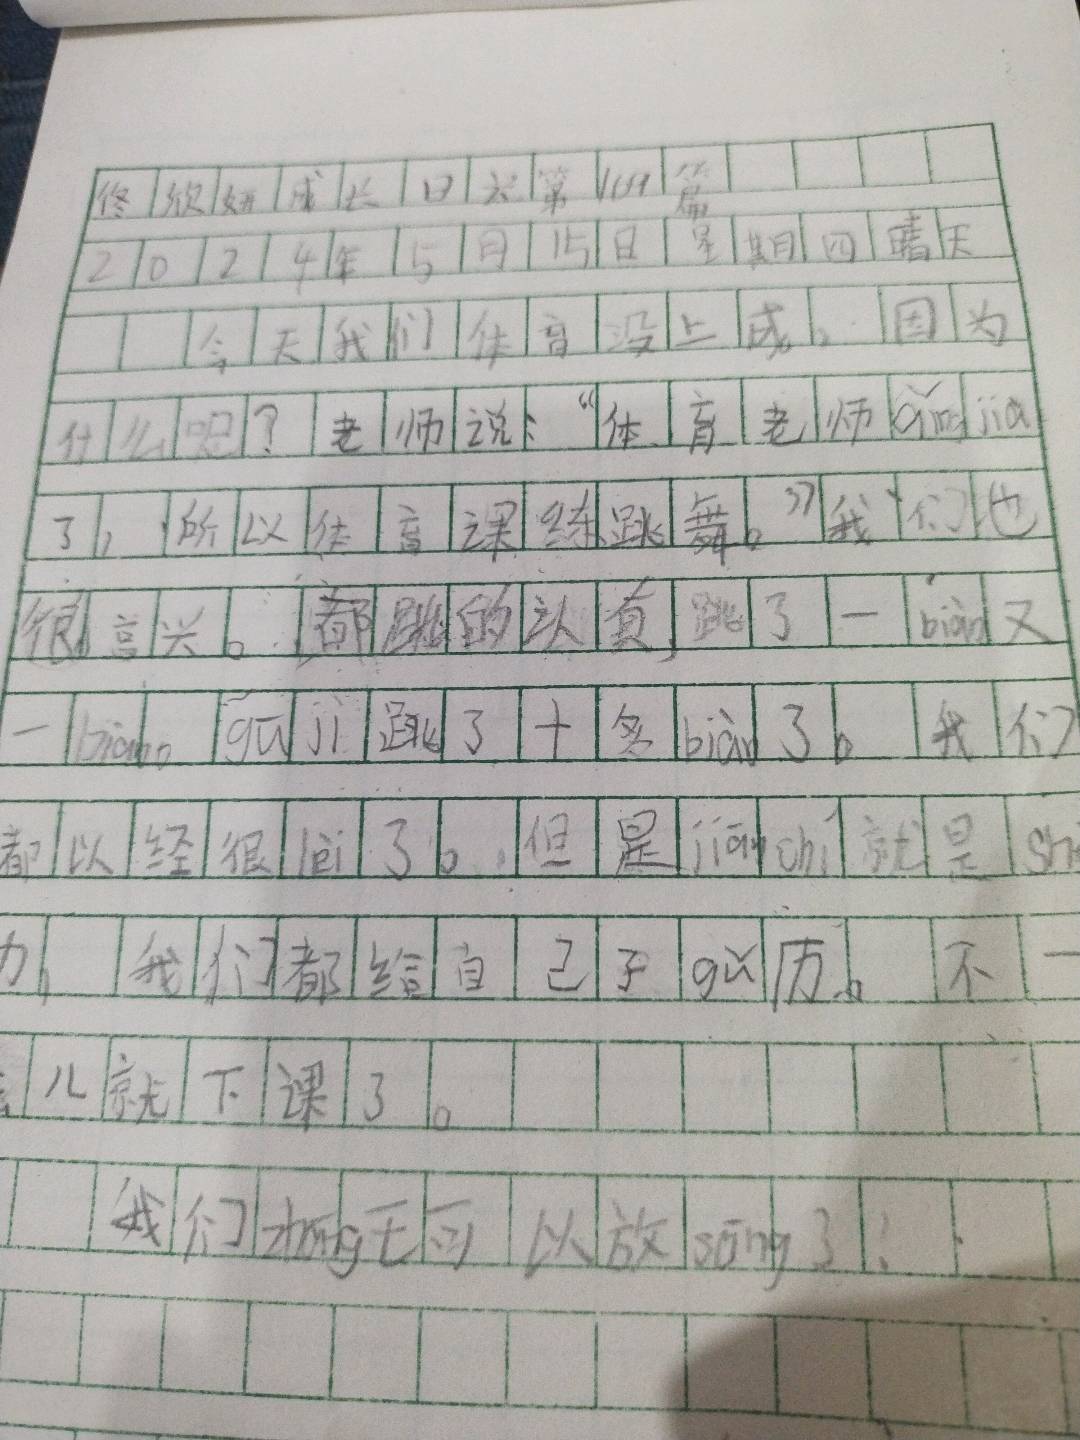 佟欣妍成长日长第1169篇
2024年5月15日星期四晴天
今天我们体育没上成，因为
什么呢？老师说：“体育老师qǐngjià
了，所以体育课练跳舞。”我们也
很高兴。都跳的认真，跳了一biàn又
一biàn。gūjì跳了十多biàn了。我们
都以经很lèi了。但是jiānchí就是shèng
力，我们都给自己于gǔ历。不一
会儿就下课了。
我们zhōng于可以放sōng了！